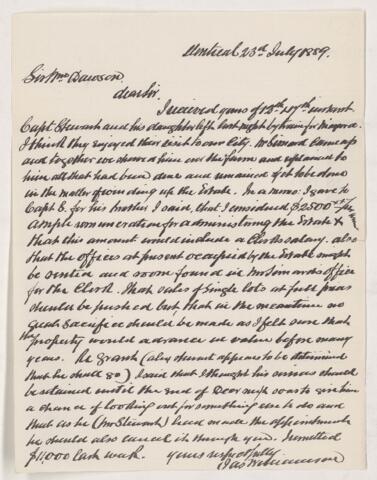 Montreal 23rd July 1889.
Sir Wm Dawson.
dear Sir
I received yours of 13th & 17th instant
Capt Stewart and his daughter left last night by train for Niagara
I think they enjoyed their visit to our City. Mr came up
and together we showed him over the farm and explained to
him all that had been done and remained yet to be done
in the matter of winding up the Estate. In a memo I gave to
Capt S. for his brother I said, that I considered $2500
ample remuneration for administering the Estate &
that this amount would include a Clerks salary. also
that the offices at present occupied by the Estate ought
to be rented and room found in Mr office
for the Clerk. that sales of single lots at full prices
should be pushed but that in the meantime no
great sacrifice should be made as I felt sure that
the property would advance in value before many
years. Re Grant (Stewart appears to be determined
that he shall go) I said that I thought his services should
be retained until the end of year so as to give him
a chance of looking out for something else to do and
that as he (Mr Stewart) had made the appointment
he should also cancel it through you. I remitted
$11,000 last week. yours respectfully
Jas Williamson